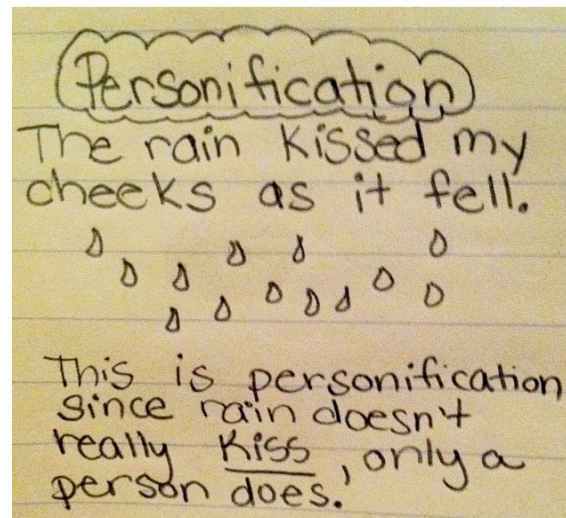 Personification
The rain kissed my
cheeks as it fell.
This is personification
since rain doesn't
really kiss, only a
person does.